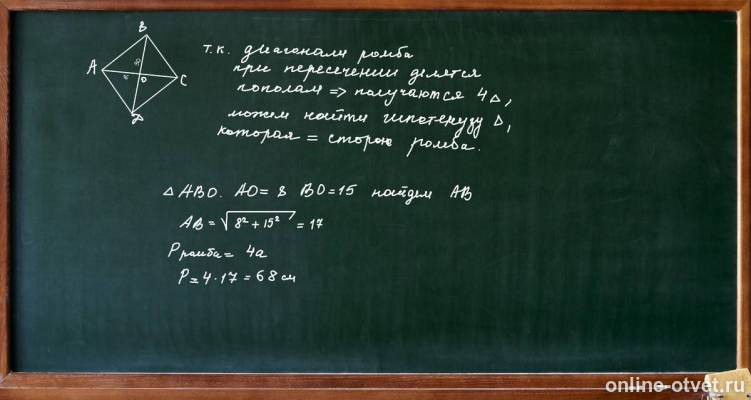 B
A
O
C
D
т.к. диагонали ромба
при пересечении делятся
пополам => получаются 4 △,
можем найти гипотенузу △,
которая = сторою ромба.
△ ABO. AO = 8 BO = 15 найдем AB
AB = √8² + 15² = 17
Pромба = 4a
P = 4 · 17 = 68 см
online-otvet.ru